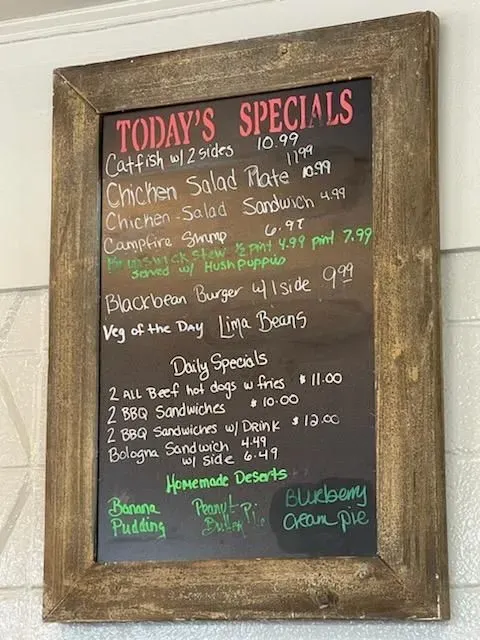 TODAY'S SPECIALS
Catfish w/ 2 sides 10.99
11.99
Chicken Salad Plate 10.99
Chicken-Salad Sandwich 4.99
Campfire Shrimp 6.97
Brunswick stew ½ pint 4.99 pint 7.99
served w/ Hushpuppies
Blackbean Burger w/ 1 side 9.99
Veg of the Day Lima Beans
Daily Specials
2 ALL Beef hot dogs w fries $11.00
2 BBQ Sandwiches $10.00
2 BBQ Sandwiches w/ Drink $12.00
Bologna Sandwich 4.49
w/ side 6.49
Homemade Deserts
Banana Pudding
Peanut Butter Pie
Blueberry Cream Pie